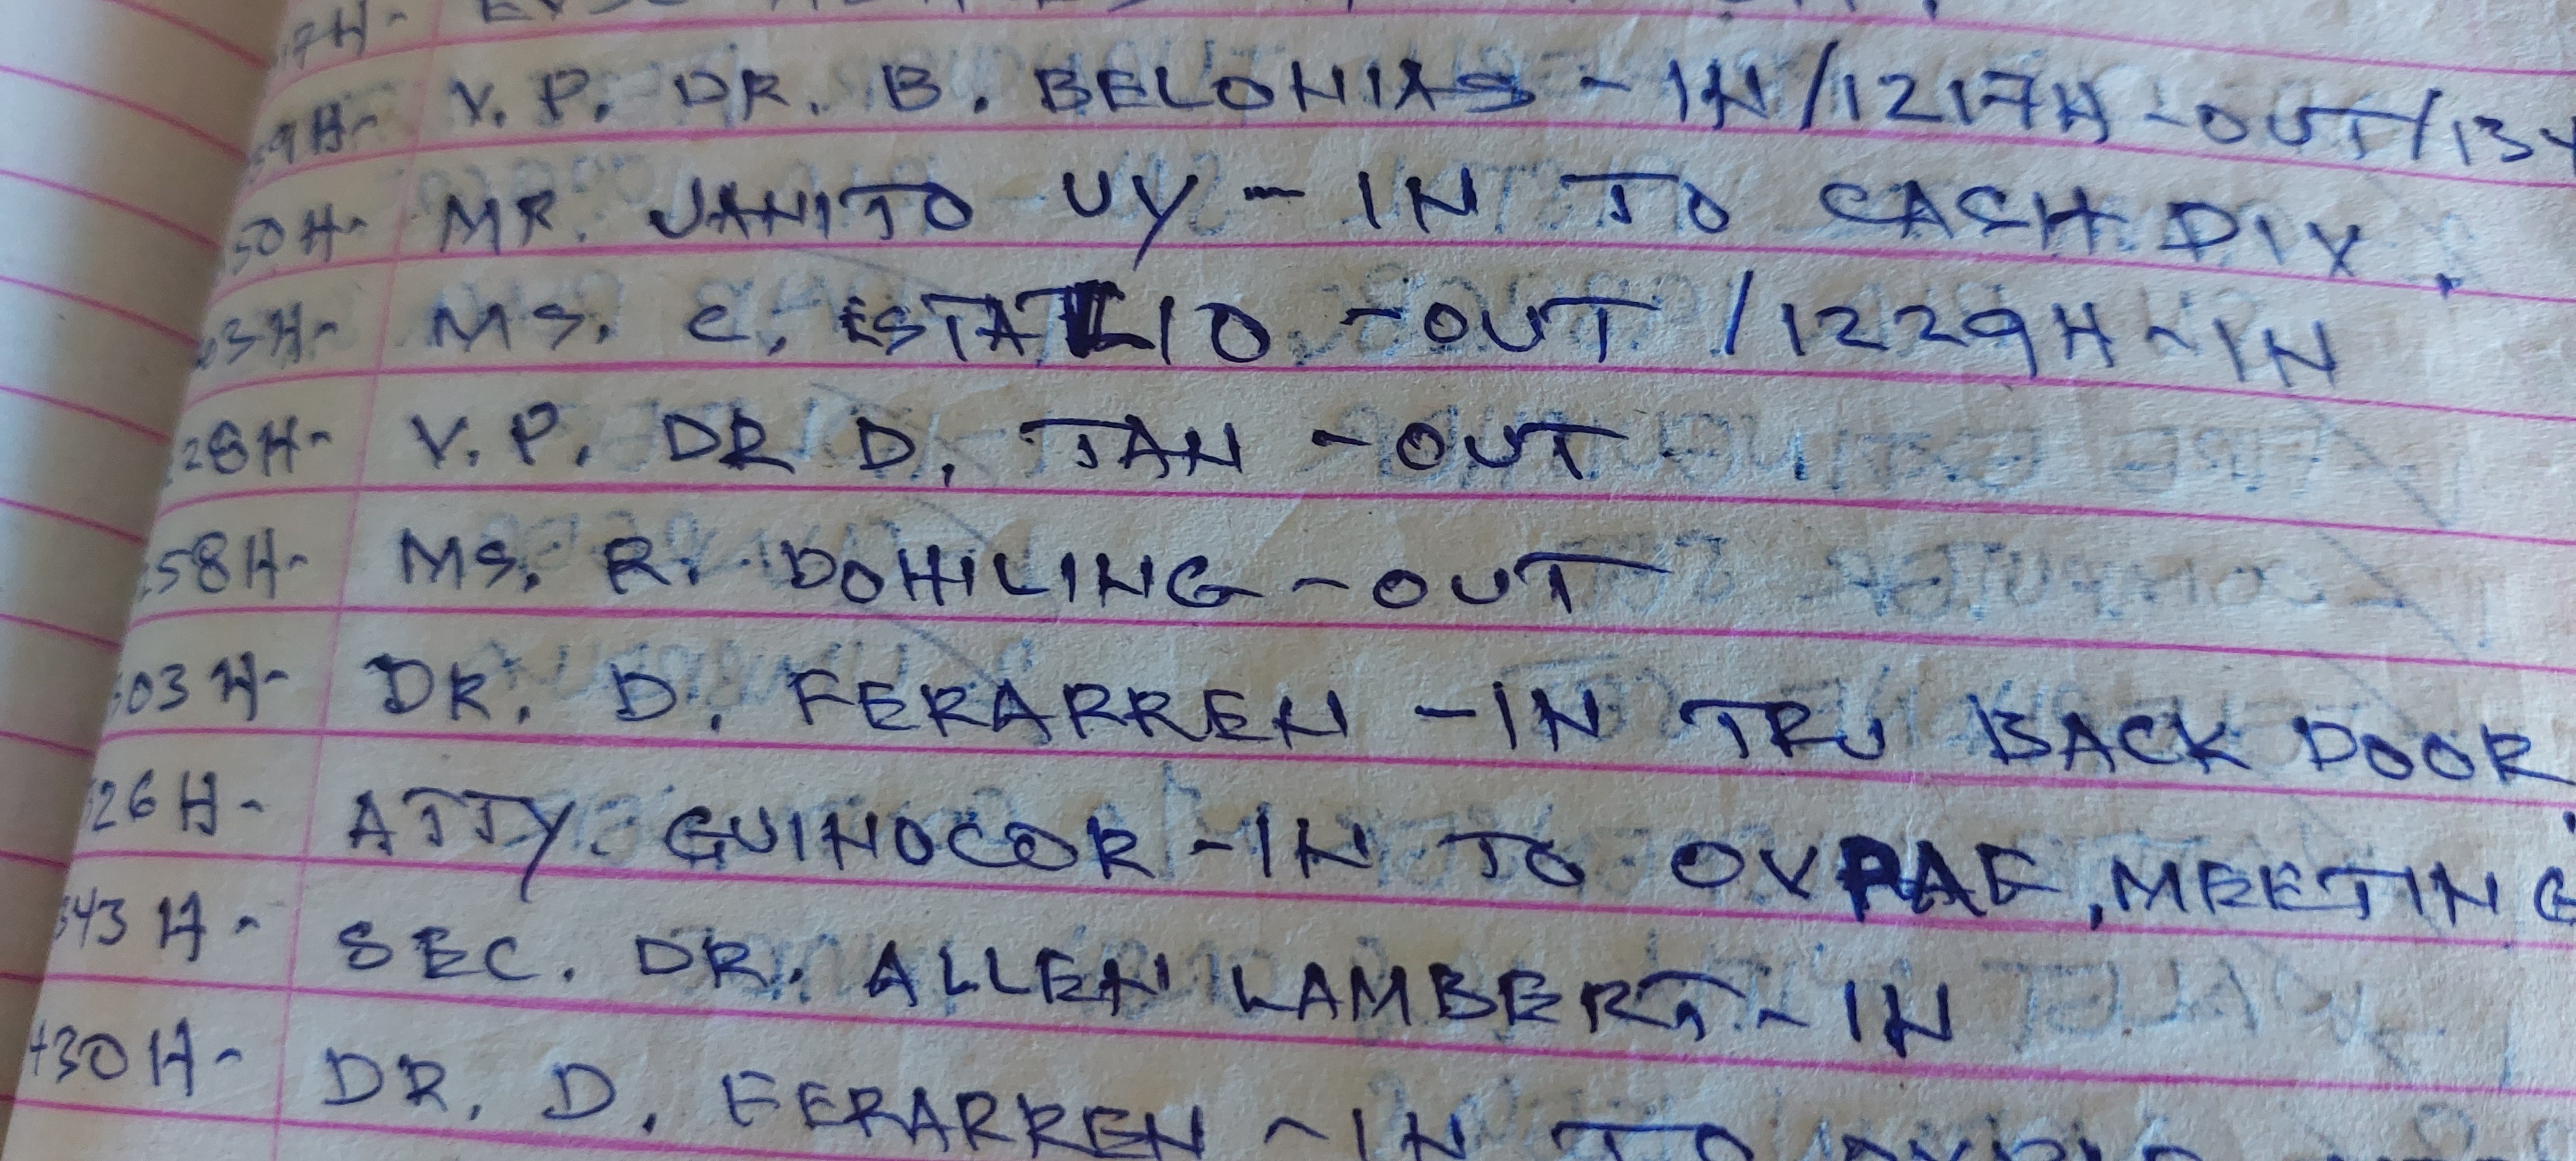 V. P. DR. B. BELONIAS - IN/1217H - OUT/134
50H- MR. JANITO UY - IN TO CASH DIV.
MS. C. ESTALIO - OUT /1229H - IN
28H- V. P. DR D. TAN - OUT
58H- MS. R. DOHILING - OUT
03H- DR. D. FERARREN - IN TRU BACK DOOR
26H- ATTY. GUINOCOR - IN TO OVPAF, MEETING
343H- SEC. DR. ALLEN LAMBERT - IN
430H- DR. D. FERARREN - IN TO